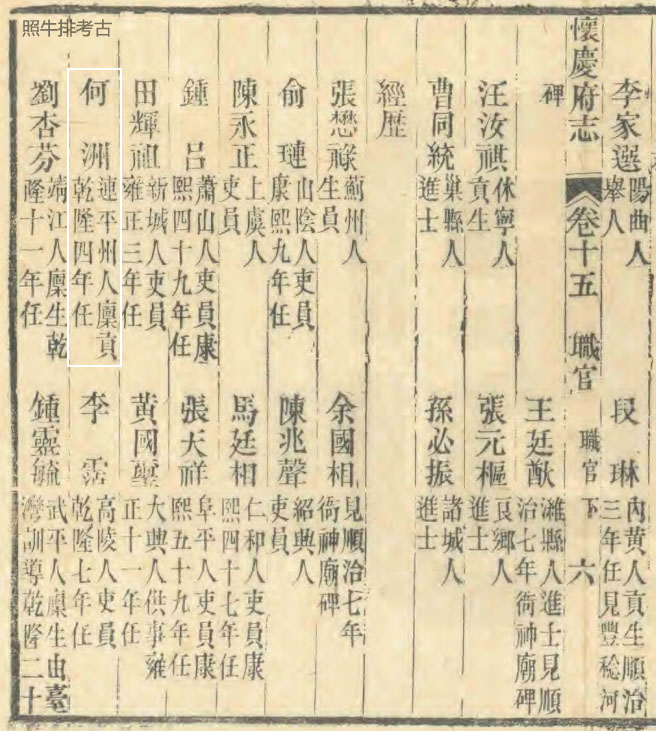 照牛排考古
李家選 陽曲人
舉人
段琳 內黃人貢生順治
三年任見豐稔河
碑
王廷猷 濰縣人進士見順
治七年衙神廟碑
懷慶府志 卷十五 職官 職官下 六
汪汝祺 休寧人
貢生
張元樞 良鄉人
進士
曹同統 巢縣人
進士
孫必振 諸城人
進士
經歷
張懋祿 薊州人
生員
余國相 見順治七年
衙神廟碑
俞璉 山陰人吏員
康熙九年任
陳兆聲 紹興人
吏員
陳永正 上虞人
吏員
馬廷相 仁和人吏員康
熙四十七年任
鍾呂 蕭山人吏員康
熙四十九年任
張天祥 阜平人吏員康
熙五十九年任
田輝祖 新城人吏員
雍正三年任
黃國璽 大興人供事雍
正十一年任
何洲 連平州人廩貢
乾隆四年任
李霑 高陵人吏員
乾隆七年任
劉杏芬 端江人廩生乾
隆十一年任
鍾靈毓 武平人廩生由臺
灣訓導乾隆二十